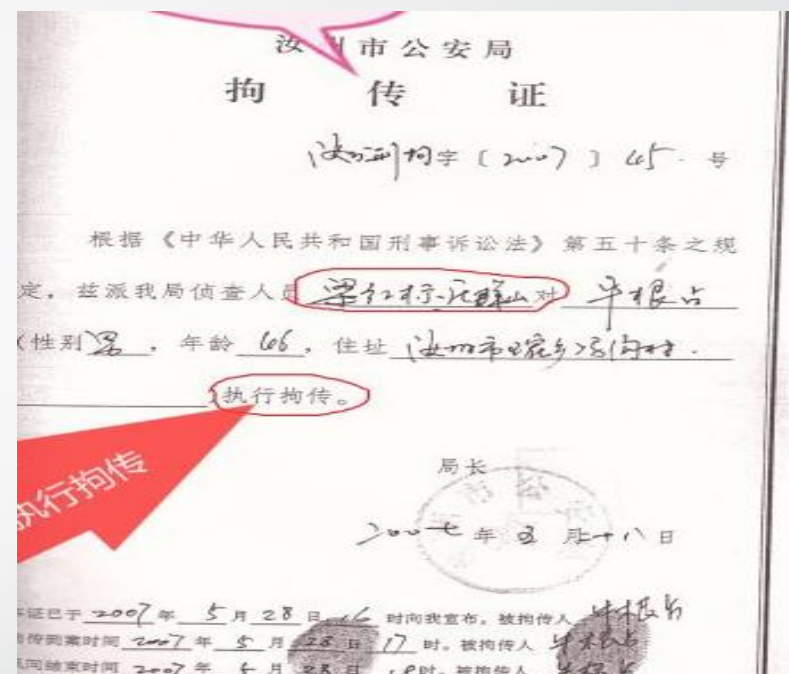 汝州市公安局
拘 传 证
汝公刑拘字〔2007〕45号
根据《中华人民共和国刑事诉讼法》第五十条之规
定，兹派我局侦查人员 对 牛根占
(性别 男 ，年龄 46 ，住址 汝州市 乡 沟村.
执行拘传。
执行拘传
局长
二〇〇七年五月二十八日
证已于 2007 年 5 月 28 日 16 时向我宣布。被拘传人 牛根占
传到案时间 2007 年 5 月 28 日 17 时。被拘传人 牛根占
结束时间 2007 年 5 月 28 日 时。被拘传人 牛根占